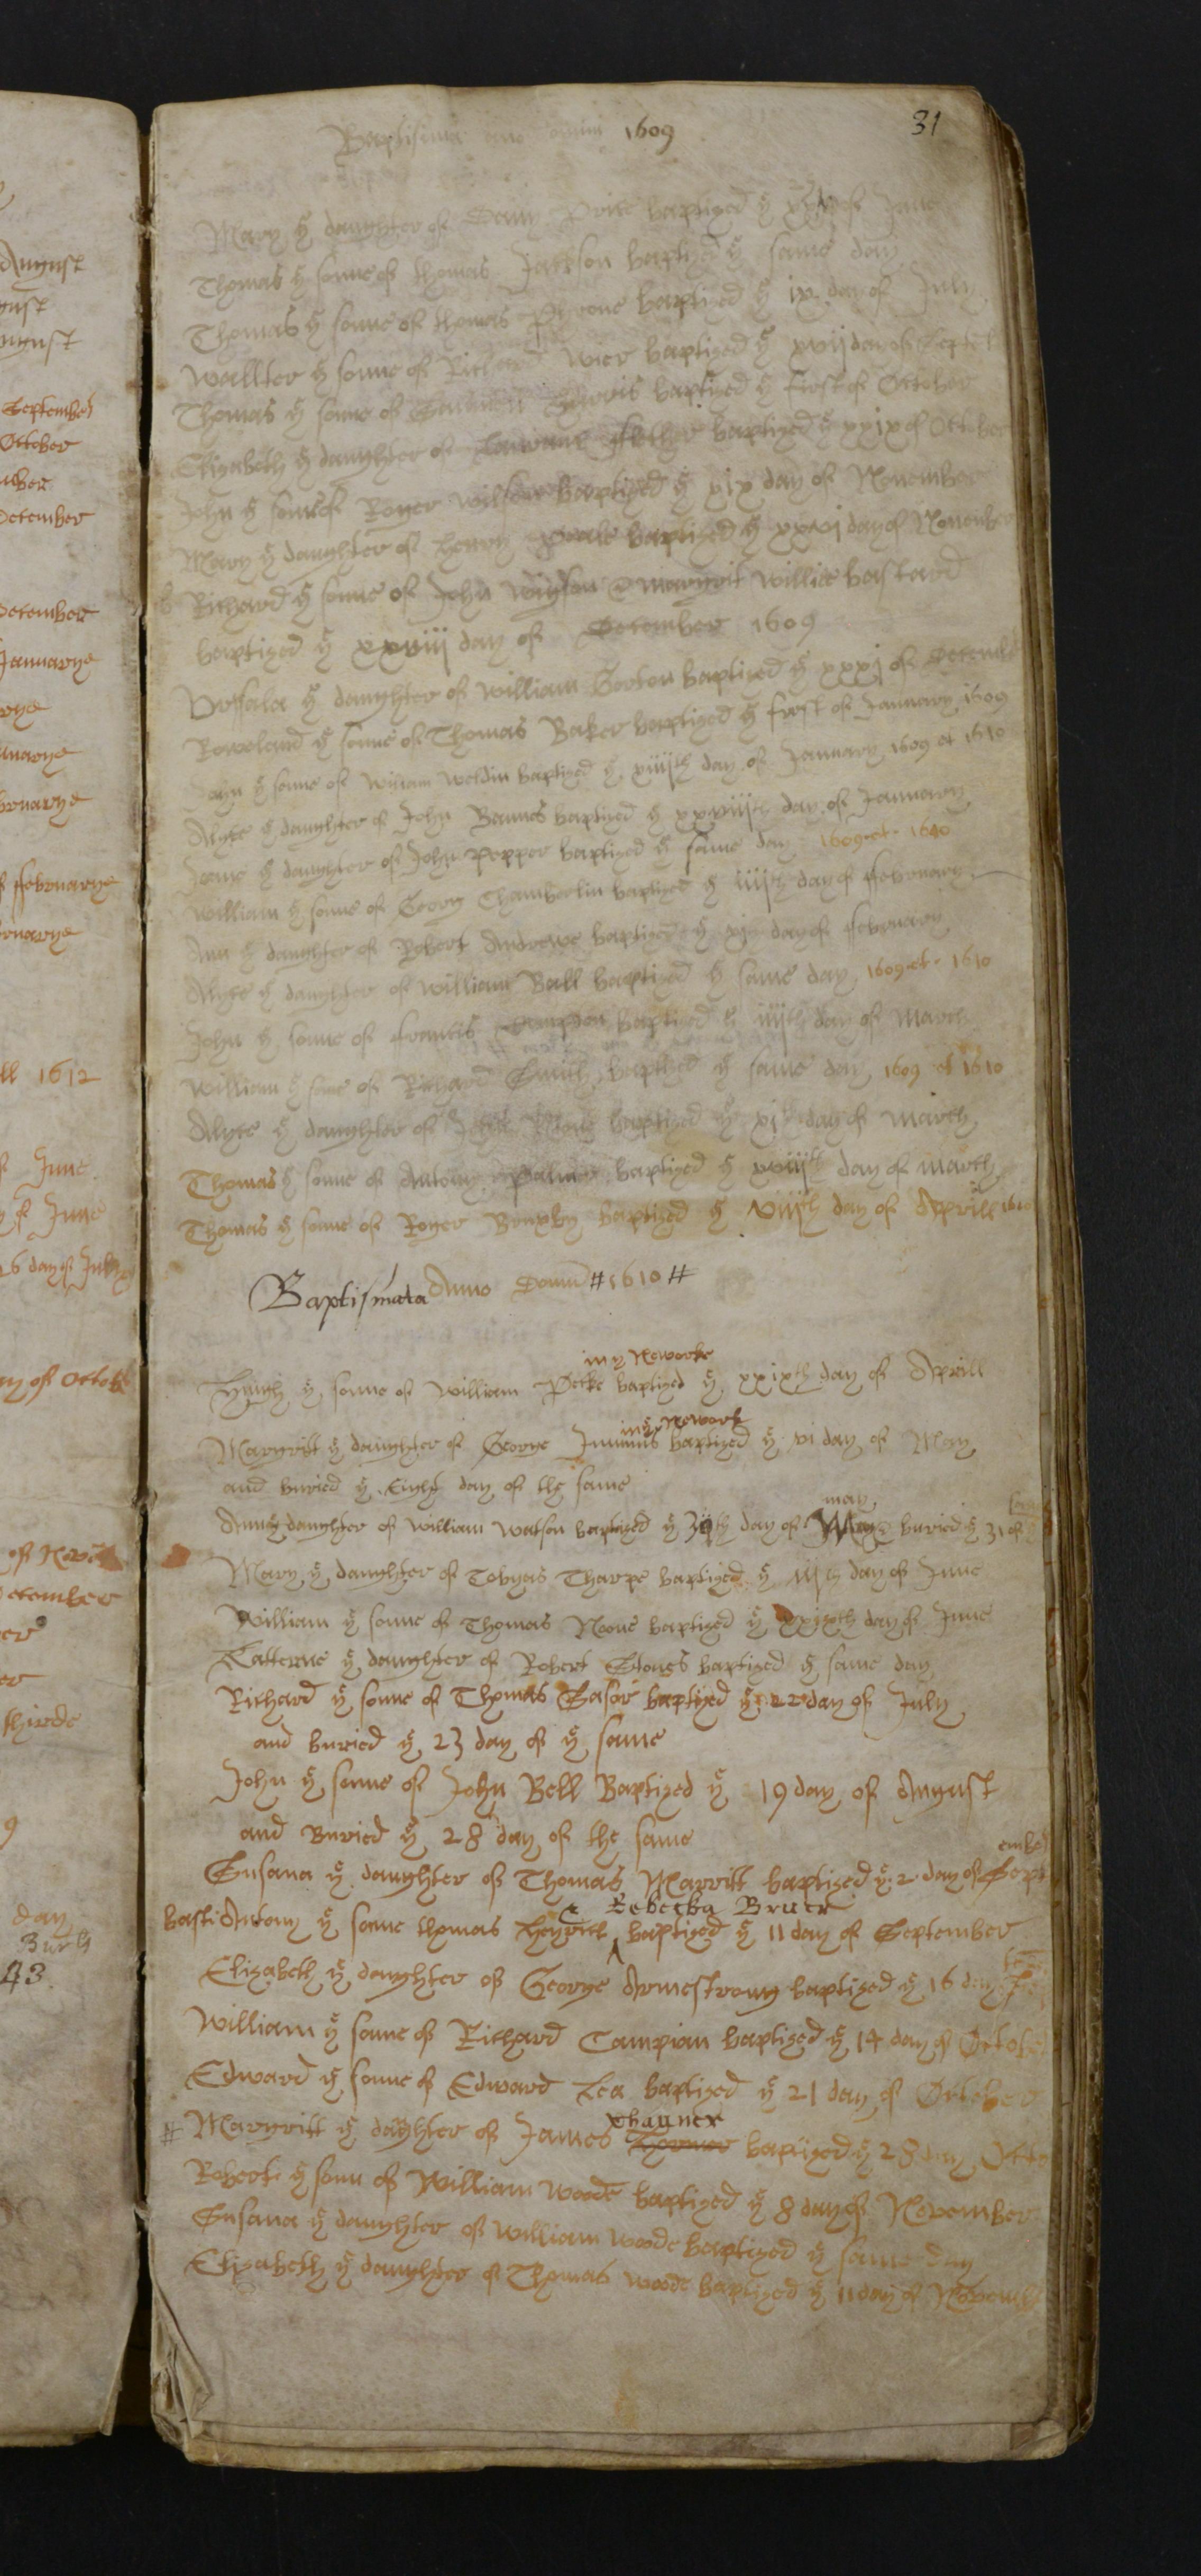 August
gust
ugust
September
October
mber
December
December
Januarye
rye
nuarye
bruarye
f ffebruarye
ruarye
ll 1612
f June
y of June
26 day of July
ay of Octob
of Nove
December
er
er
thirde
9
day
Buryh
43
31
Baptisma Anno Domini 1609
Mary ye daughter of baptized ye of June
Thomas ye sonne of thomas Jackson baptized ye same day
Thomas ye sonne of thomas baptized ye ix day of July
Wallter ye sonne of Richard Wier baptized ye xvij day of Septeb
Thomas ye sonne of baptized ye first of October
Elizabeth ye daughter of baptized ye xxix of October
John ye sonne of Roger Willson baptized ye xix day of November
Mary ye daughter of Henry baptized ye xxvj day of November
b Richard ye sonne of John & Margrit Willice bastard
baptized ye xxviij day of December 1609
Vrssala ye daughter of William Gorton baptized ye xxxj of December
Rowland ye sonne of Thomas Baker baptized ye first of January 1609
John ye sonne of William Weldin baptized ye xiiijth day of January 1609 et 1610
Alyce ye daughter of John Barnes baptized ye xxviijth day of January
Jeane ye daughter of John Pepper baptized ye same day 1609 et 1610
William ye sonne of Georg Chamberlin baptized ye iiijth day of ffebruary
Ann ye daughter of Robert Andrewe baptized ye xj day of ffebruary
Alyce ye daughter of William Ball baptized ye same day 1609 et 1610
John ye sonne of Francis baptized ye iiijth day of March
William ye sonne of Richard Smith baptized ye same day 1609 et 1610
Alyce ye daughter of baptized ye xjth day of March
Thomas ye sonne of Antony Palmer baptized ye xviijth day of March
Thomas ye sonne of Roger Bruxby baptized ye viijth day of Aprill 1610
Baptismata Anno Domi # 1610 #
in ye Neworke
Hugh ye sonne of William Pecke baptized ye xxixth day of Aprill
in ye Newark
Margritt ye daughter of George baptized ye vi day of May
and buried ye Eight day of the same
may
Ann ye daughter of William Watson baptized ye 30th day of May & buried ye 31 of same
Mary ye daughter of Tobyas Tharpe baptized ye iijth day of June
William ye sonne of Thomas Noone baptized ye xxixth day of June
Katterne ye daughter of Robert Stones baptized ye same day
Richard ye sonne of Thomas Gasor baptized ye 22 day of July
and buried ye 23 day of ye same
John ye sonne of John Bell Baptized ye 19 day of August
and Buried ye 28 day of the same
ember
Susana ye daughter of Thomas Marritt baptized ye 2 day of Sept
& Rebecka Bruer
bast: Antony ye sonne thomas Heyrick ^ baptized ye 11 day of September
Elizabeth ye daughter of George Armestrong baptized ye 16 day
William ye sonne of Richard Campian baptized ye 14 day of Octobe
Edward ye sonne of Edward Lea baptized ye 21 day of October
Chauner
# Margritt ye daughter of James baptized ye 28 day Octo
Roberte ye sonn of William Woode baptized ye 8 day of November
Susana ye daughter of William Woode baptized ye same day
Elizabeth ye daughter of Thomas Woode baptized ye 11 day of Novemb